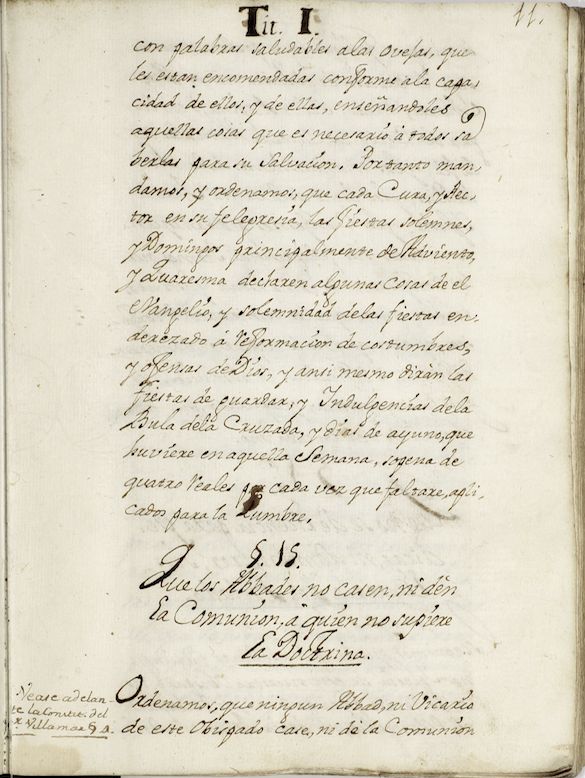 Tit. I.
11.
con palabras saludables a las ovejas, que
les estan encomendadas conforme a la capa-
cidad de ellos, y de ellas, enseñandoles
aquellas cosas que es necesario à todos sa
berlas para su Salvacion. Portanto man-
damos, y ordenamos, que cada Cura, y Rec-
tor en su felegresia, las fiestas solemnes,
y Domingos principalmente de Adviento,
y Quaresma declaren algunas cosas de el
Evangelio, y solemnidad delas fiestas en-
derezado à reformacion de costumbres,
y ofensas de Dios, y ansi mesmo diràn las
fiestas de guardar, y Indulgencias dela
Bula dela Cruzada, y dias de ayuno, que
huviere en aquella Semana, sopena de
quatro reales por cada vez que faltare, apli-
cados para la Lumbre.
§. 15.
Que los Abbades no casen, ni dèn
La Comunion, à quien no supiere
La Doctrina.
Ordenamos, que ningun Abbad, ni Vicario
de este Obispado case, ni dè la Comunion
Vease adelan-
te la Constit. del
Sr. Villamar § 4.